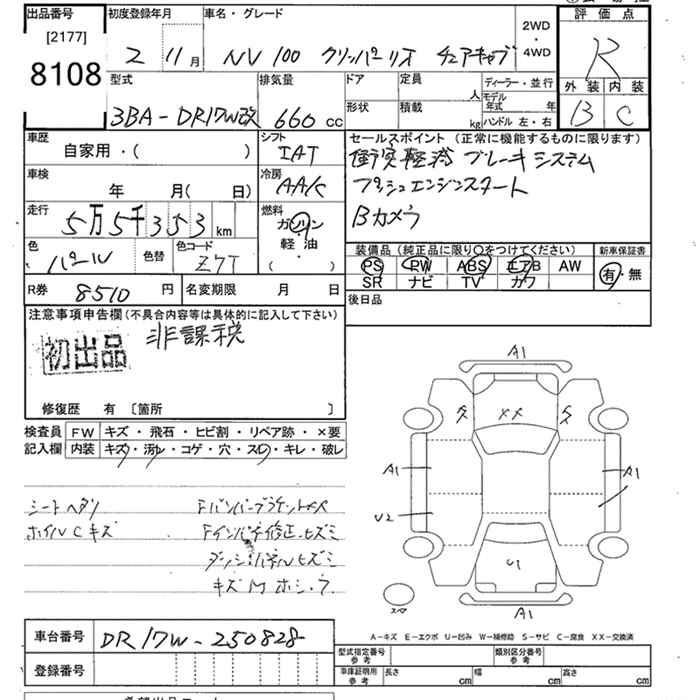 出品番号
[2177]
8108
初度登録年月
2 11月
車名・グレード
NV100 クリッパーリオ チェアキャブ
2WD
・
4WD
評価点
R
外装 内装
B C
型式
3BA-DR17W改
排気量
660 cc
ドア
形状
定員
人
積載
kg
ディーラー・並行
モデル年式 年
ハンドル 左・右
車歴
自家用・( )
シフト
IAT
車検
年 月( 日)
冷房
AA/C
走行
5万5千353 km
燃料
ガソリン
軽油
( )
色
パール
色替
色コード
Z7T
R券
8510 円
名変期限 月 日
セールスポイント(正常に機能するものに限ります)
衝突軽減ブレーキシステム
プッシュエンジンスタート
Bカメラ
装備品(純正品に限り○をつけてください)
PS PW ABS エアB AW
SR ナビ TV カワ
新車保証書
有・無
後日品
注意事項申告欄(不具合内容等は具体的に記入して下さい)
初出品
非課税
修復歴 有 〔箇所 〕
検査員記入欄
FW キズ・飛石・ヒビ割・リペア跡・×要
内装 キズ・汚レ・コゲ・穴・スレ・キレ・破レ
シートヘタリ
ホイルCキズ
FバンパーブラケットXX
Fインパネ修正、ヒズミ
ダッシュパネルヒズミ
A1
XX
A1
A1
U2
U1
A1
A-キズ E-エクボ U-凹み W-補修跡 S-サビ C-腐食 XX-交換済
車台番号
DR17W-250828
登録番号
型式指定番号
参考
類別区分番号
参考
車庫証明用
参考
長さ cm
幅 cm
高さ cm